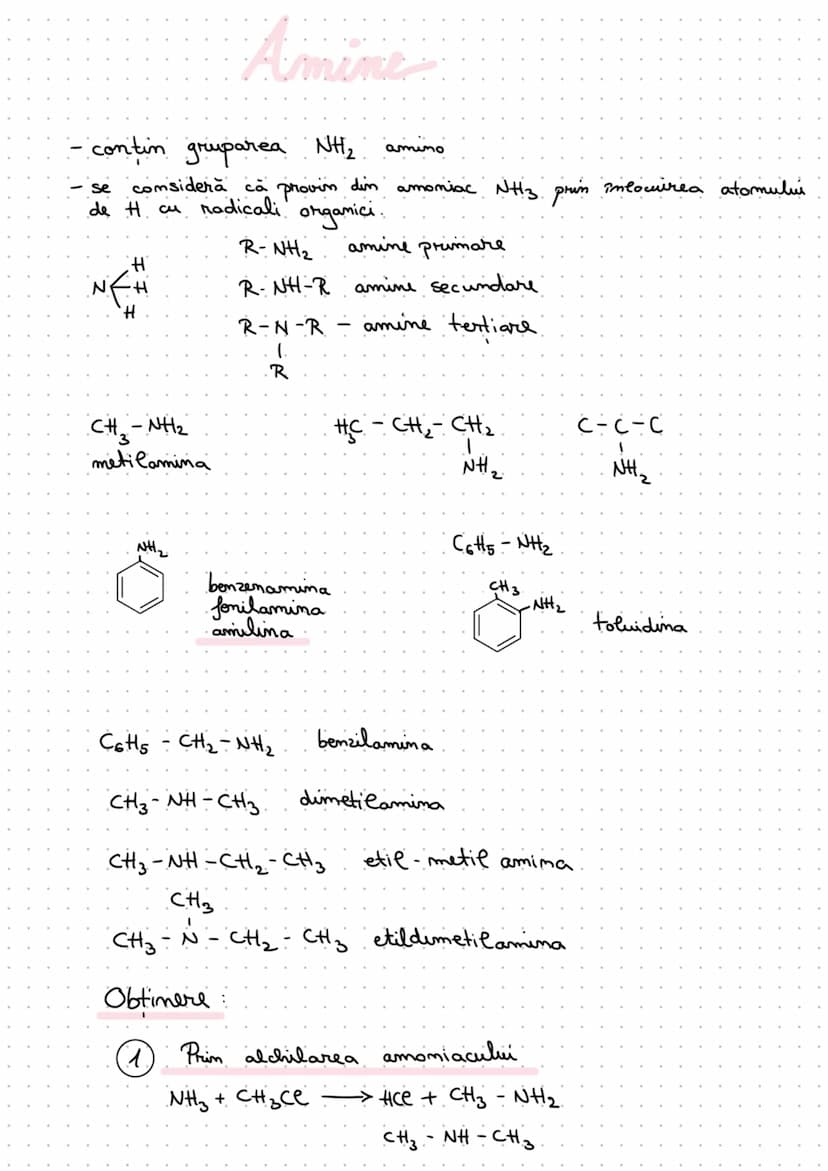 Amine
- conțin gruparea NH₂ amino
- se consideră că provin din amoniac NH₃ prin înlocuirea atomului
de H cu radicali organici.
R-NH₂ amine primare
H
N H R-NH-R amine secundare
H
R-N-R - amine terțiare
R
CH₃-NH₂ H₃C-CH₂-CH₂ C-C-C
metilamina NH₂ NH₂
NH₂ C₆H₅-NH₂
benzenamina CH₃
fenilamina NH₂
anilina toluidina
C₆H₅-CH₂-NH₂ benzilamina
CH₃-NH-CH₃ dimetilamina
CH₃-NH-CH₂-CH₃ etil-metil amina
CH₃
CH₃-N-CH₂-CH₃ etildimetilamina
Obținere:
1 Prin alchilarea amoniacului
NH₃ + CH₃Cl → HCl + CH₃-NH₂
CH₃-NH-CH₃